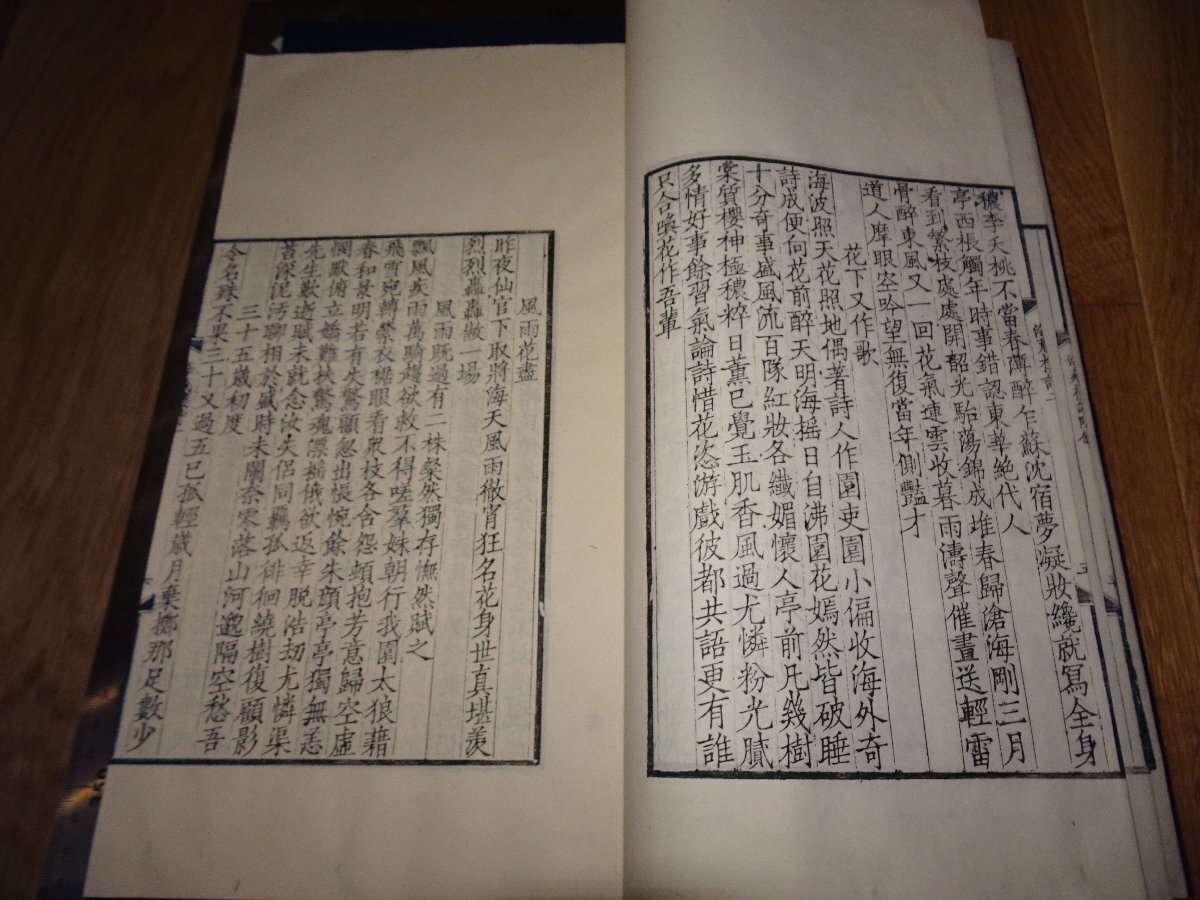 穠李夭桃不當春薄醉乍蘇沈宿夢凝妝纔就寫全身
亭西悵觸年時事錯認東華絕代人
看到繁枝處處開韶光駘蕩錦成堆春歸滄海剛三月
骨醉東風又一回花氣連雲收暮雨濤聲催晝送輕雷
道人摩眼空吟望無復當年側豔才
花下又作歌
海波照天花照地偶著詩人作園吏園小偏收海外奇
詩成便向花前醉天明海搖日自沸園花嫣然皆破睡
十分奇事盛風流百隊紅妝各纖媚懷人亭前凡幾樹
棠質櫻神極穠粹日薰已覺玉肌香風過尤憐粉光膩
多情好事餘習氣論詩惜花恣游戲彼都共語更有誰
只合喚花作吾輩
風雨花盡
昨夜仙官下取將海天風雨徹宵狂名花身世真堪羨
烈烈轟轟做一場
風雨既過有二株粲然獨存憮然賦之
飄風疾雨萬騎趨欲救不得嗟羣姝朝行我園太狼藉
飛雪宛轉縈衣裾眼看眾枝各含怨頓抱芳意歸空虛
春和景明若有失驚顧忽出悵惋餘朱顏亭亭獨無恙
憫默俯立嬌難扶驚魂漂蕩俄欲返幸脫浩劫尤憐渠
先生歎逝賦未就念汝失侶同羈孤徘徊繞樹復顧影
苦深泥污聊相於盛時未闌奈零落山河邈隔空愁吾
三十五歲初度
令名殊不果三十又過五已孤輕歲月棄擲那足數少